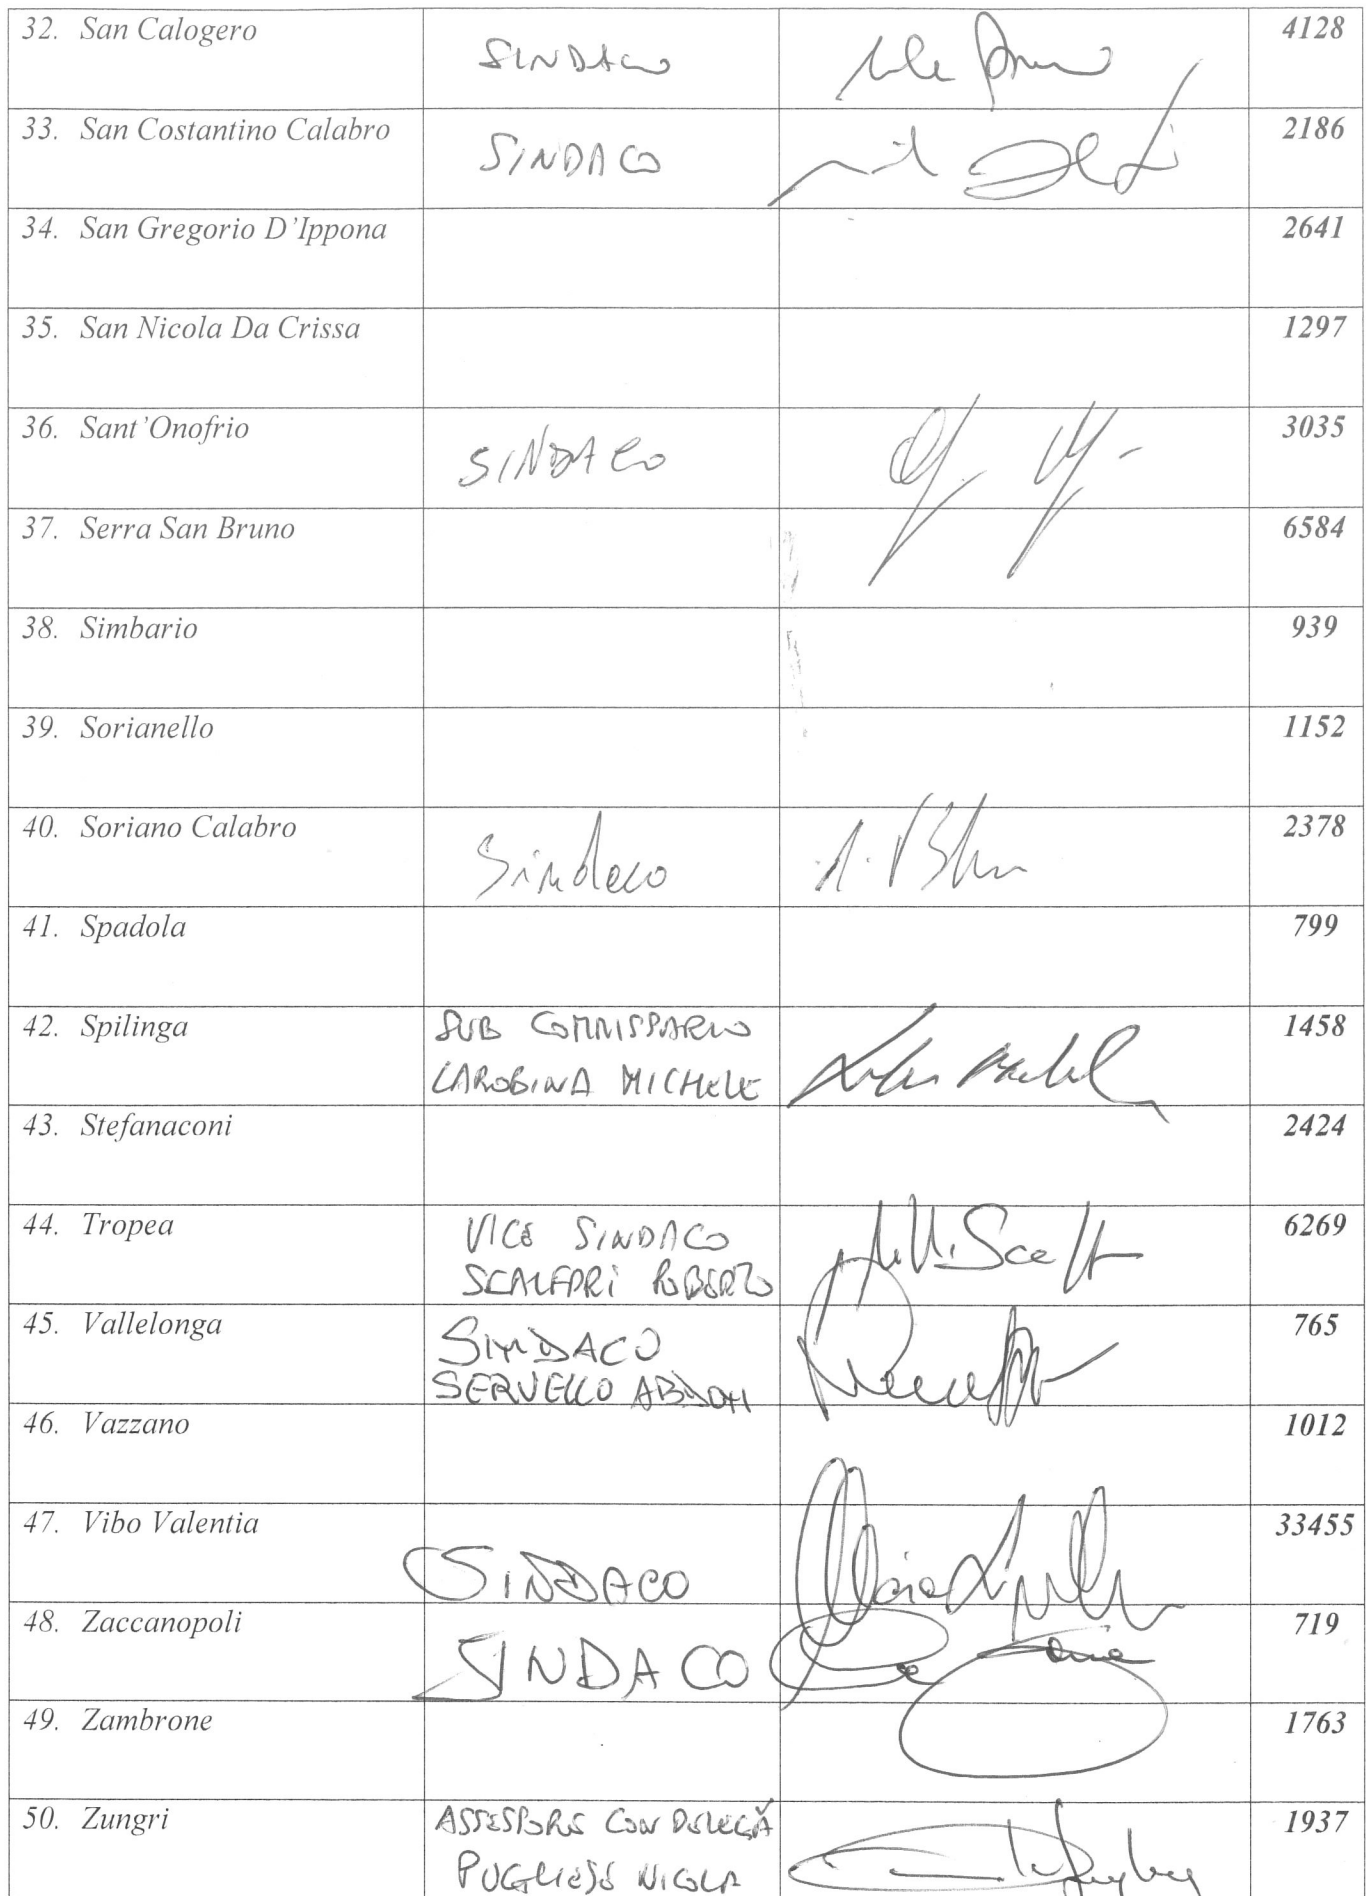 32. San Calogero SINDACO 4128
33. San Costantino Calabro SINDACO 2186
34. San Gregorio D'Ippona 2641
35. San Nicola Da Crissa 1297
36. Sant'Onofrio SINDACO 3035
37. Serra San Bruno 6584
38. Simbario 939
39. Sorianello 1152
40. Soriano Calabro Sindaco 2378
41. Spadola 799
42. Spilinga SUB COMMISSARIO 1458
CAROBINA MICHELE
43. Stefanaconi 2424
44. Tropea VICE SINDACO 6269
SCALFARI ROBERTO
45. Vallelonga SINDACO 765
SERVELLO
46. Vazzano 1012
47. Vibo Valentia SINDACO 33455
48. Zaccanopoli SINDACO 719
49. Zambrone 1763
50. Zungri ASSESSORE CON DELEGA 1937
PUGLIESE NICOLA